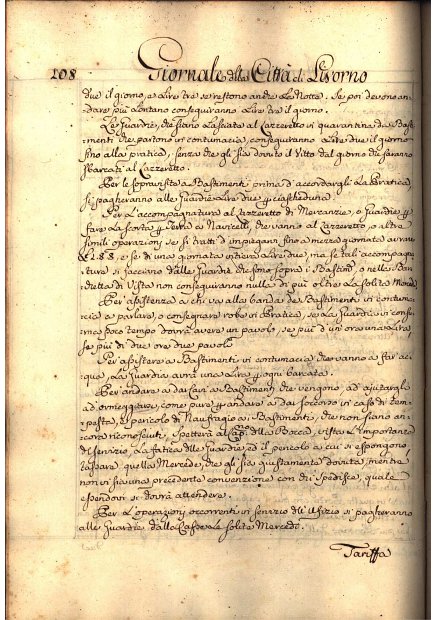 208 Giornale della Città di Livorno
due il giorno, e Lire tre se restono anche la Notte. Se poi devono an-
dare più lontano conseguiranno Lire tre il giorno.
Le Guardie, che siano lasciate al Lazzeretto in quarantina da Basti-
menti che partono in contumacia, conseguiranno Lire due il giorno
fino alla pratica, senza che gli sia dovuto il Vitto dal giorno che saranno
sbarcati al Lazzeretto.
Per le sopravista a Bastimenti prima d'accordargli la Pratica,
si pagheranno alle Guardie Lire due p ciascheduna.
Per l'accompagnatura al Lazzeretto di Mercanzie, o Guardie p
fare la scorta p Terra a Navicelli, che vanno al Lazzeretto, o altre
simili operazioni se si tratti d'impiegarvi fino a mezza giornata avranno
£ 1.8.8, e se di una giornata intiera Lire due, ma se tali accompagna-
ture si facciano dalle Guardie che sono sopra i Bastim.ti, o nella Ban-
dietta di Vista non conseguiranno nulla di più oltre la solita Merc.de
Per assistenza a chi va alla banda de Bastimenti in contuma-
cia a parlare, o consegnare robe in Pratica, se la Guardia vi consu-
ma poco tempo dovrà avere un pavolo, se più d'un'ora una Lira,
se più di due ore due pavoli
Per assistere a Bastimenti in contumacia che vanno a far ac-
qua, la Guardia avrà una Lira p ogni barcata.
Per andare a dar Cavi a Bastimenti che vengono ad ajutargli
ad ormeggiarsi, come pure p andare a dar soccorso in caso di tem-
pesta, e pericolo di Naufragio a Bastimenti, che non siano an-
cora riconosciuti, spetterà al Cap.no della Bocca, vista l'importanza
del servizio, la fatica delle Guardie, ed il pericolo a cui si espongono,
tassare quella Mercede, che gli sia giustamente dovuta, mentre
non vi sia una precedente convenzione con chi spedisce, quale
essendovi si dovrà attendere.
Per l'operazioni occorrenti in servizio dell'Ufizio si pagheranno
alle Guardie dalla Cassa le solite Mercedi.
Tariffa